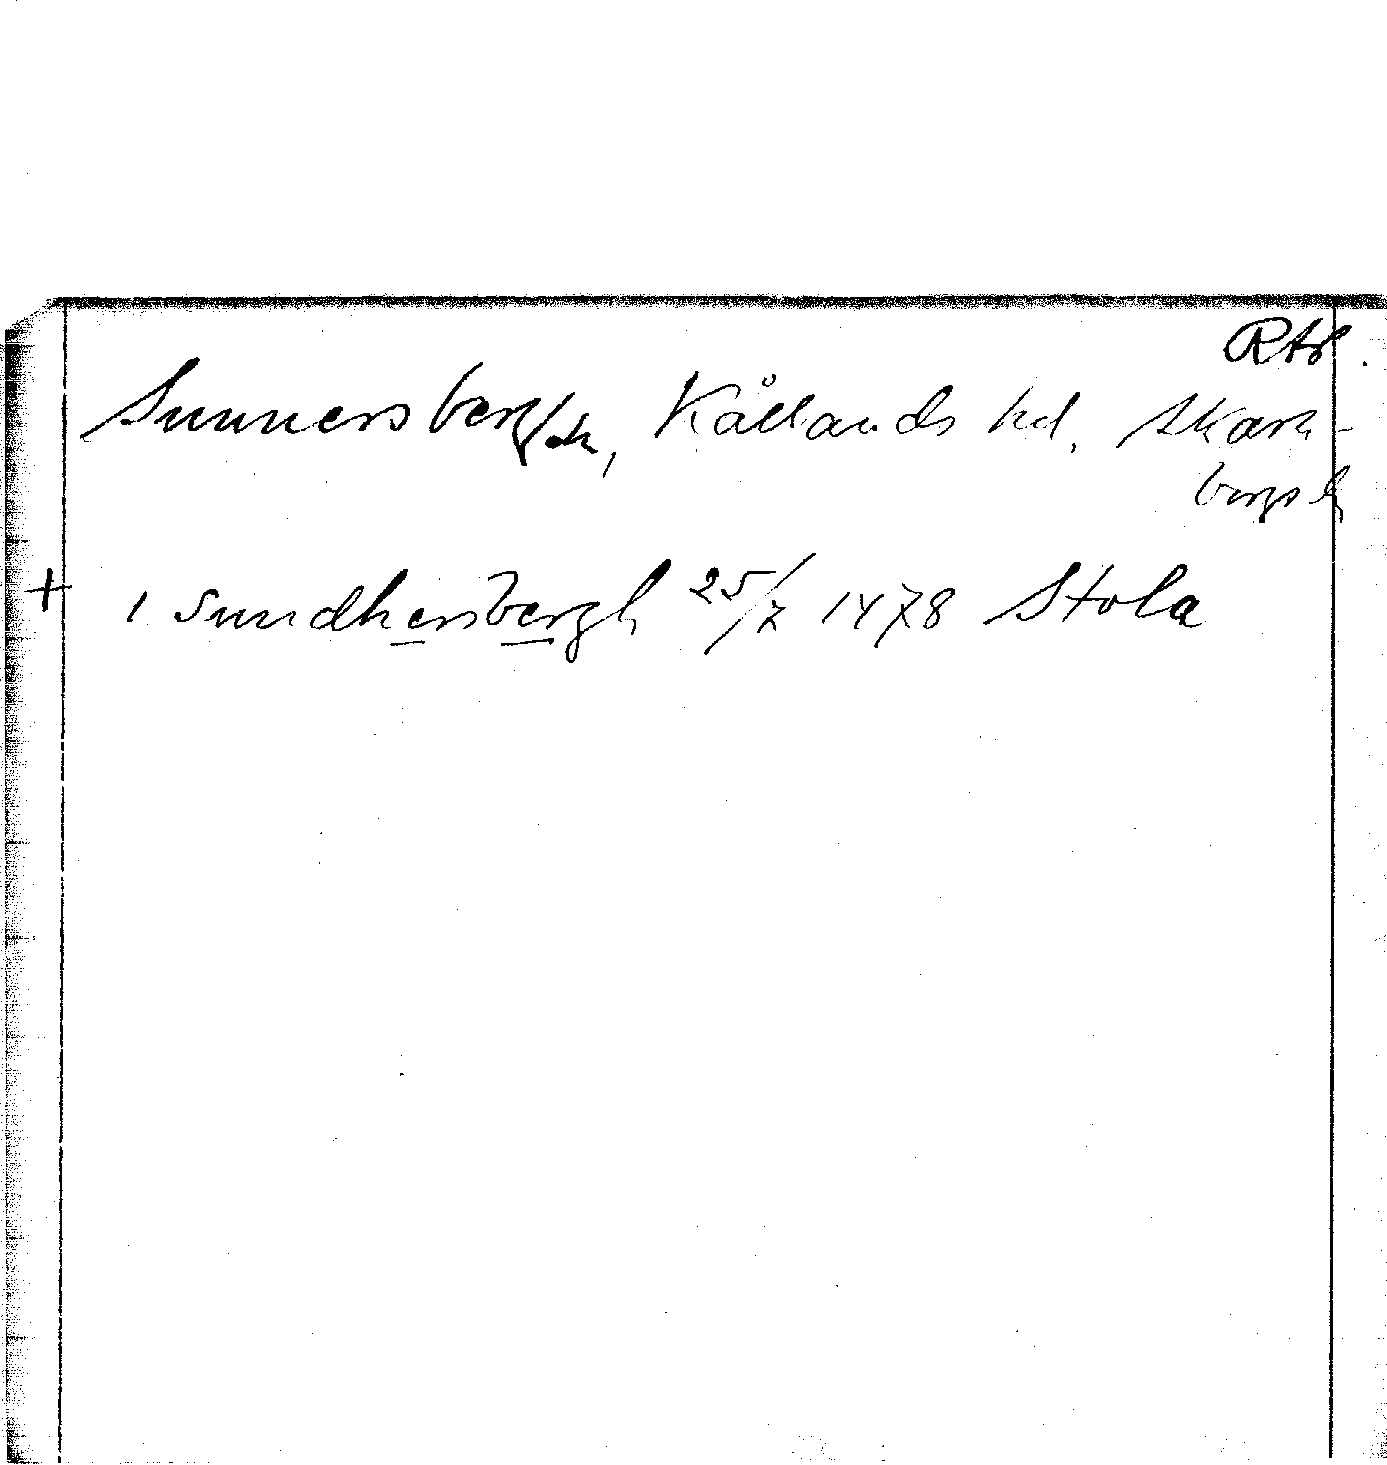 Rtb.
Sunnersberg/sn, Kållands hd, Skara-
bergs l
+ i Sundhersbergh 25/7 1478 Stola